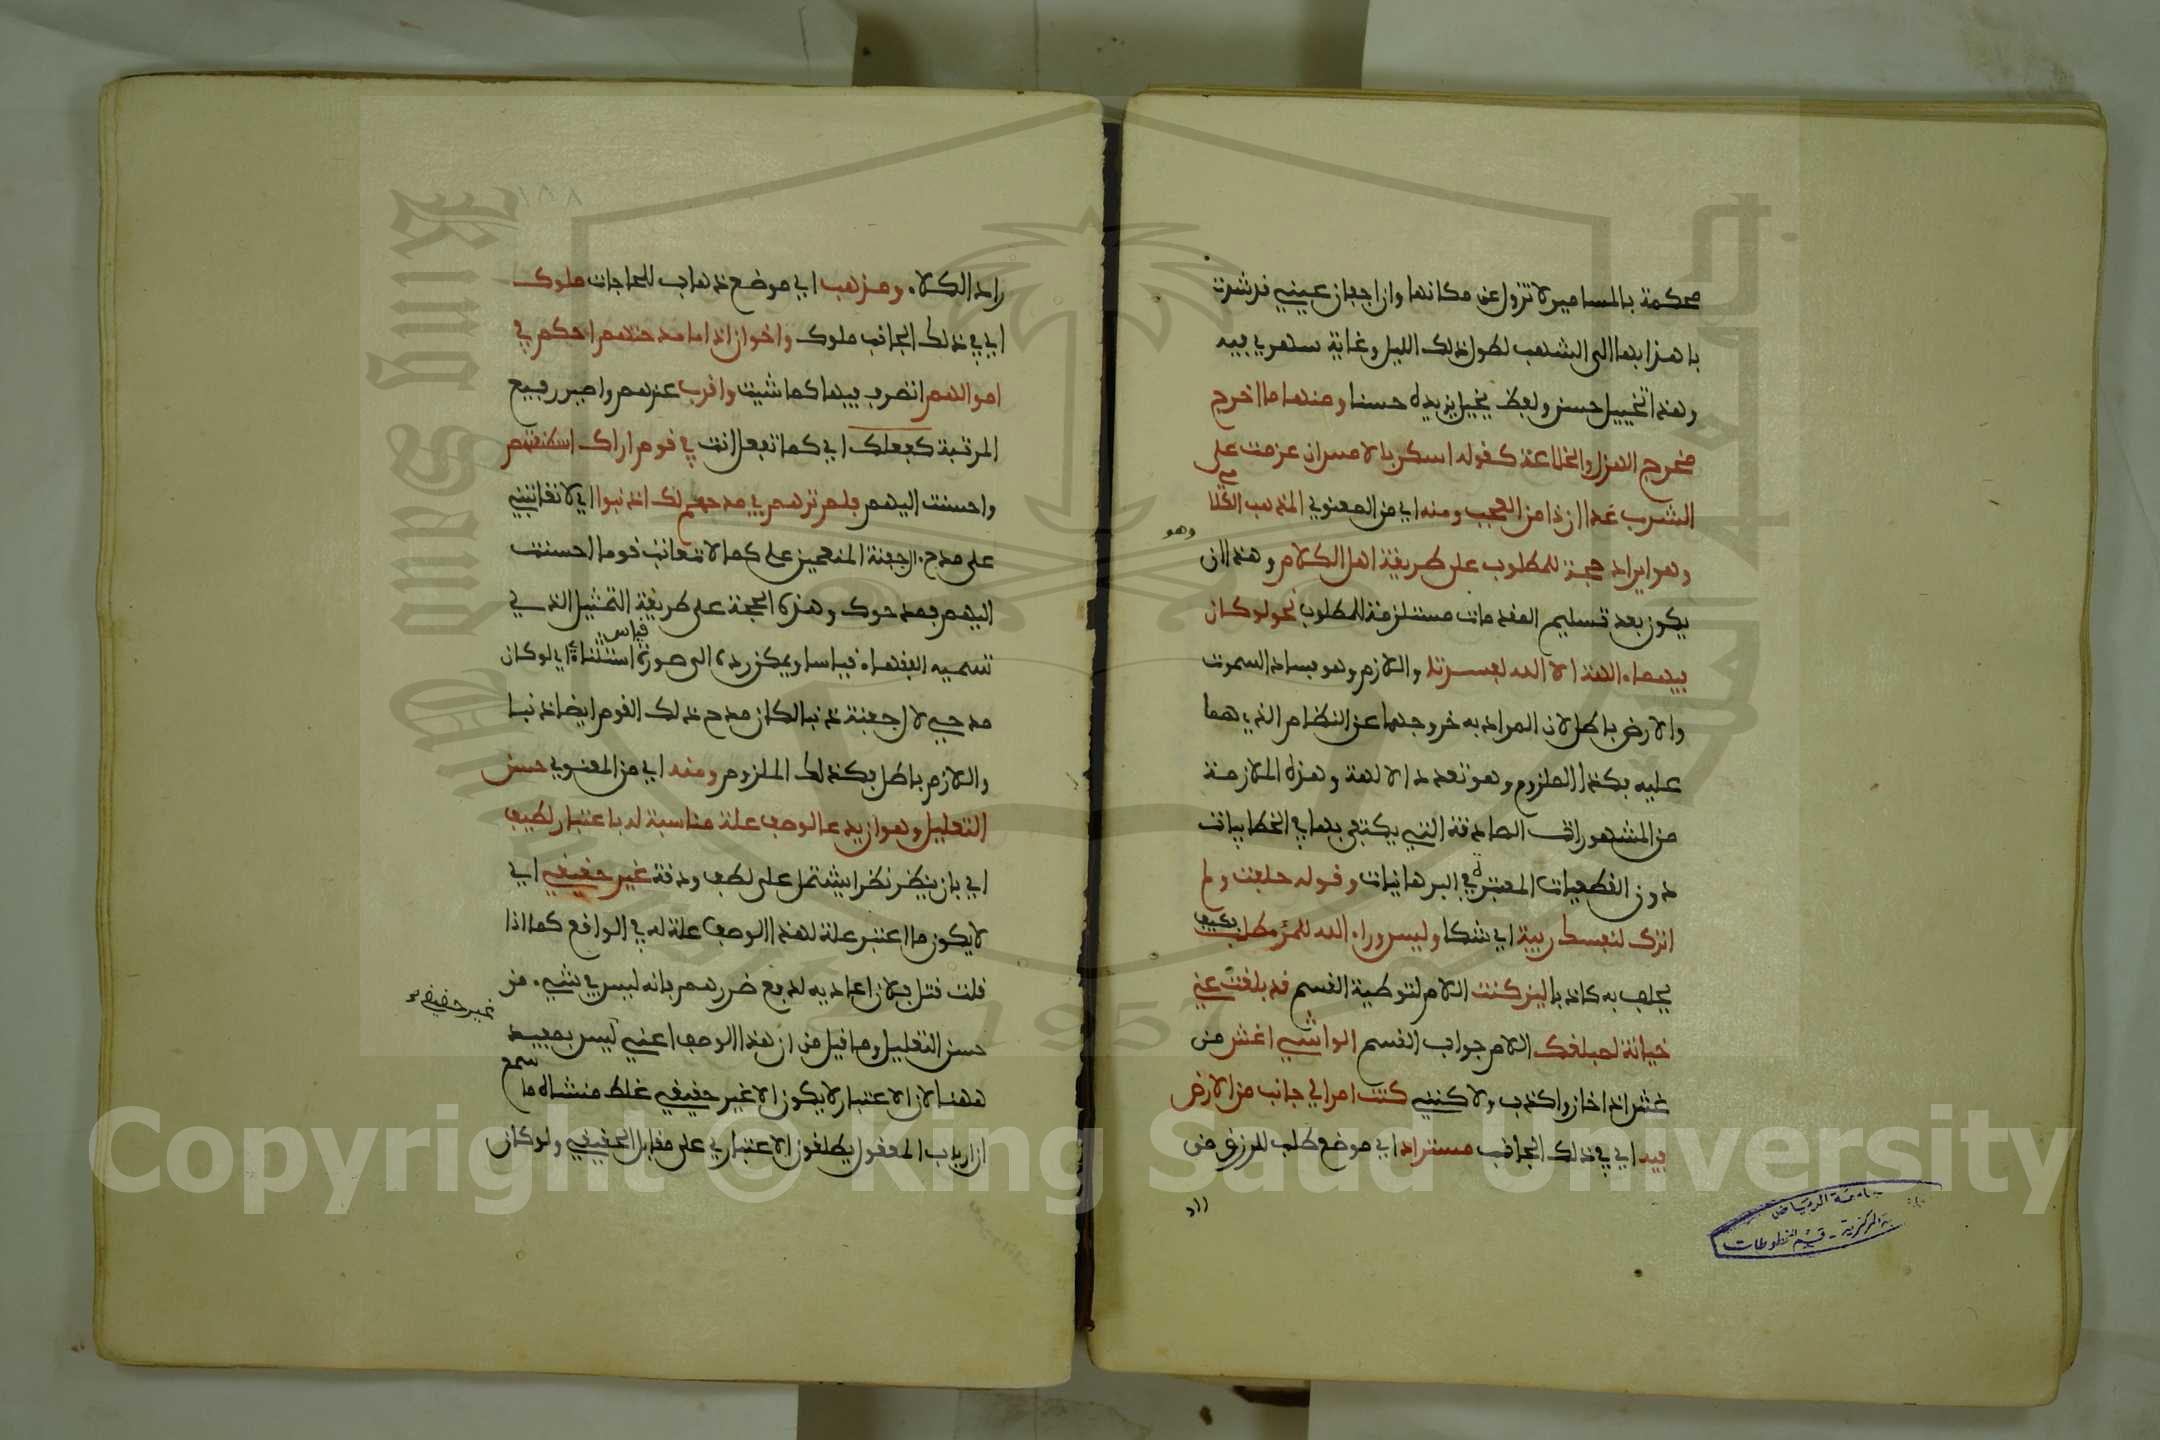 محكمة بالمسامير لا تزول عن مكانها وان اجفان عيني قد شدت
باهدابها الى الشهب لطول ذلك الليل وغاية سهري فيه
وهذا تخييل حسن ولفظ يخيل يزيده حسنا ومنها ما اخرج
مخرج الهزل والخلاعة كقوله اسكر بالامس ان عزمت على
الشرب غدا ان ذا من العجب ومنه اي من المعنوي المذهب الكلامي
وهو ايراد حجة للمطلوب على طريقة اهل الكلام وهذا ان
وهو
يكون بعد تسليم المقدمات مستلزمة للمطلوب نحو لو كان
فيهما ءالهة الا الله لفسدتا واللازم وهو فساد السموت
والارض باطل لان المراد به خروجهما عن النظام الذي هما
عليه فكذا الملزوم وهو تعدد الالهة وهذه الملازمة
من المشهورات الصادقة التي يكتفى بها في الخطابيات
دون القطعيات المعتبرة في البرهانيات وقوله حلفت ولم
اترك لنفسك ريبة اي شكا وليس وراء الله للمرء مطلب فكيف
يحلف به كاذبا لين كنت اللام لتوطية القسم قد بلغت عني
خيانة لمبلغك اللام جواب القسم الواشي اغش من
غش اذا خان واكذب ولاكنني كنت امرا لي جانب من الارض
فيه اي في ذلك الجانب مستراد اي موضع طلب للرزق من
راد
راد الكلاء ومذهب اي موضع ذهاب للحاجات ملوك
اي في ذلك الجانب ملوك واخوان اذا ما مدحتهم احكم في
اموالهم اتصرف فيها كما شيت واقرب عندهم واصير رفيع
المرتبة كفعلك اي كما تفعل انت في قوم اراك اصطنعتهم
واحسنت اليهم فلم ترهم في مدحهم لك اذنبوا اي لا تعاتبني
على مدح ءال جفنة المنعمين علي كما لا تعاتب قوما احسنت
اليهم فمدحوك وهذه الحجة على طريقة التمثيل الذي
تسميه الفقهاء قياسا ويمكن رده الى صورة قياس استثناءي اي لو كان
مدحي لال جفنة ذنبا لكان مدح ذلك القوم ايضا ذنبا
واللازم باطل فكذلك الملزوم ومنه اي من المعنوي حسن
التعليل وهو ان يدعا لوصف علة مناسبة له باعتبار لطيف
اي بان ينظر نظرا يشتمل على لطف ودقة غير حقيقي اي
لا يكون ما اعتبر علة لهذا الوصف علة له في الواقع كما اذا
قلت قتل فلان اعاديه لدفع ضررهم فانه ليس في شيء من
حسن التعليل وما قيل من ان هذا الوصف اعني ليس بمفيد
غير حقيقي
ههنا لان الاعتبار لا يكون الا غير حقيقي غلط منشاه ما سمع
ان ارباب المعقول يطلقون الاعتباري على مقابل الحقيقي ولو كان
جامعة الرياض
المركزية - قسم المخطوطات
King Saud University
1957
Copyright © King Saud University